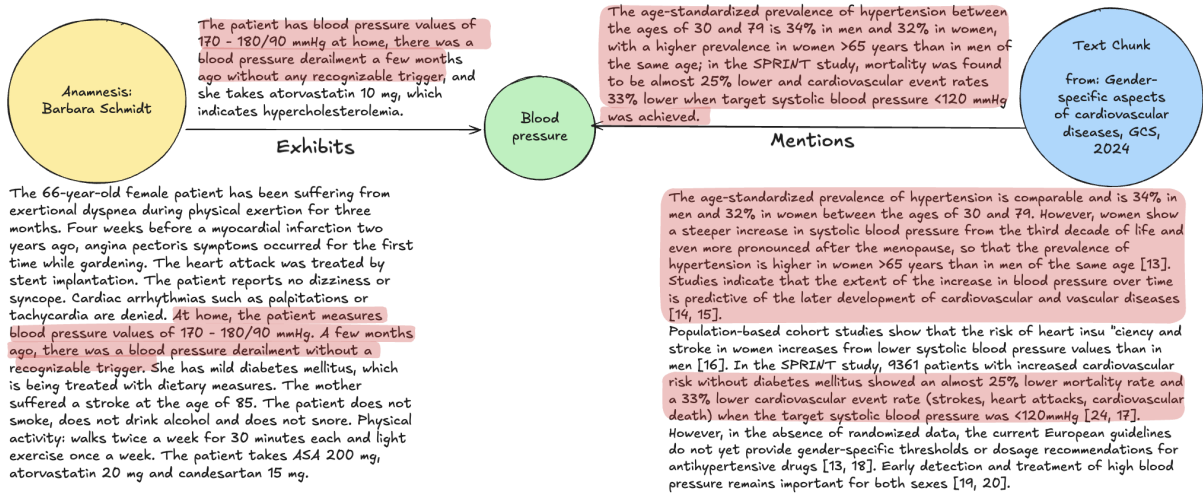 The patient has blood pressure values of
170 - 180/90 mmHg at home, there was a
blood pressure derailment a few months
ago without any recognizable trigger, and
she takes atorvastatin 10 mg, which
indicates hypercholesterolemia.
The age-standardized prevalence of hypertension between
the ages of 30 and 79 is 34% in men and 32% in women,
with a higher prevalence in women >65 years than in men of
the same age; in the SPRINT study, mortality was found
to be almost 25% lower and cardiovascular event rates
33% lower when target systolic blood pressure <120 mmHg
was achieved.
Anamnesis:
Barbara Schmidt
Exhibits
Blood
pressure
Mentions
Text Chunk
from: Gender-
specific aspects
of cardiovascular
diseases, GCS,
2024
The 66-year-old female patient has been suffering from
exertional dyspnea during physical exertion for three
months. Four weeks before a myocardial infarction two
years ago, angina pectoris symptoms occurred for the first
time while gardening. The heart attack was treated by
stent implantation. The patient reports no dizziness or
syncope. Cardiac arrhythmias such as palpitations or
tachycardia are denied. At home, the patient measures
blood pressure values of 170 - 180/90 mmHg. A few months
ago, there was a blood pressure derailment without a
recognizable trigger. She has mild diabetes mellitus, which
is being treated with dietary measures. The mother
suffered a stroke at the age of 85. The patient does not
smoke, does not drink alcohol and does not snore. Physical
activity: walks twice a week for 30 minutes each and light
exercise once a week. The patient takes ASA 200 mg,
atorvastatin 20 mg and candesartan 15 mg.
The age-standardized prevalence of hypertension is comparable and is 34% in
men and 32% in women between the ages of 30 and 79. However, women show
a steeper increase in systolic blood pressure from the third decade of life and
even more pronounced after the menopause, so that the prevalence of
hypertension is higher in women >65 years than in men of the same age [13].
Studies indicate that the extent of the increase in blood pressure over time
is predictive of the later development of cardiovascular and vascular diseases
[14, 15].
Population-based cohort studies show that the risk of heart insu "ciency and
stroke in women increases from lower systolic blood pressure values than in
men [16]. In the SPRINT study, 9361 patients with increased cardiovascular
risk without diabetes mellitus showed an almost 25% lower mortality rate and
a 33% lower cardiovascular event rate (strokes, heart attacks, cardiovascular
death) when the target systolic blood pressure was <120mmHg [24, 17].
However, in the absence of randomized data, the current European guidelines
do not yet provide gender-specific thresholds or dosage recommendations for
antihypertensive drugs [13, 18]. Early detection and treatment of high blood
pressure remains important for both sexes [19, 20].